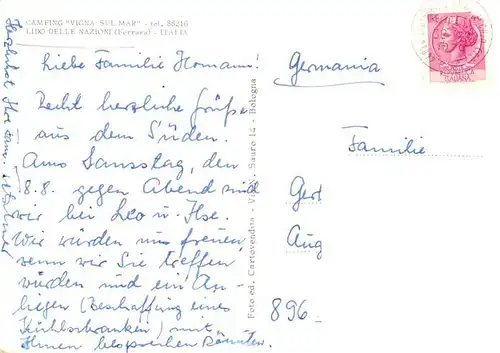 CAMPING "VIGNA SUL MAR" - tel. 85216
LIDO DELLE NAZIONI (Ferrara) - ITALIA
Liebe Familie Homann!
Recht herzliche Grüße
aus dem Süden.
Ams Sansstag, den
8.8. gegen Abend sind
wir bei Leo u. Ilse.
Wir würden uns freuen,
wenn wir Sie treffen
würden und ein An-
liegen (Beschaffung eines
Kühlschranken) mit
Ihnen besprechen könnten.
Herzlichst Ihre Fam.
Foto ed. Cartovendita - V. N. Sauro 14 - Bologna
Germania
Familie
Gert
Aug
896
ITALIANA